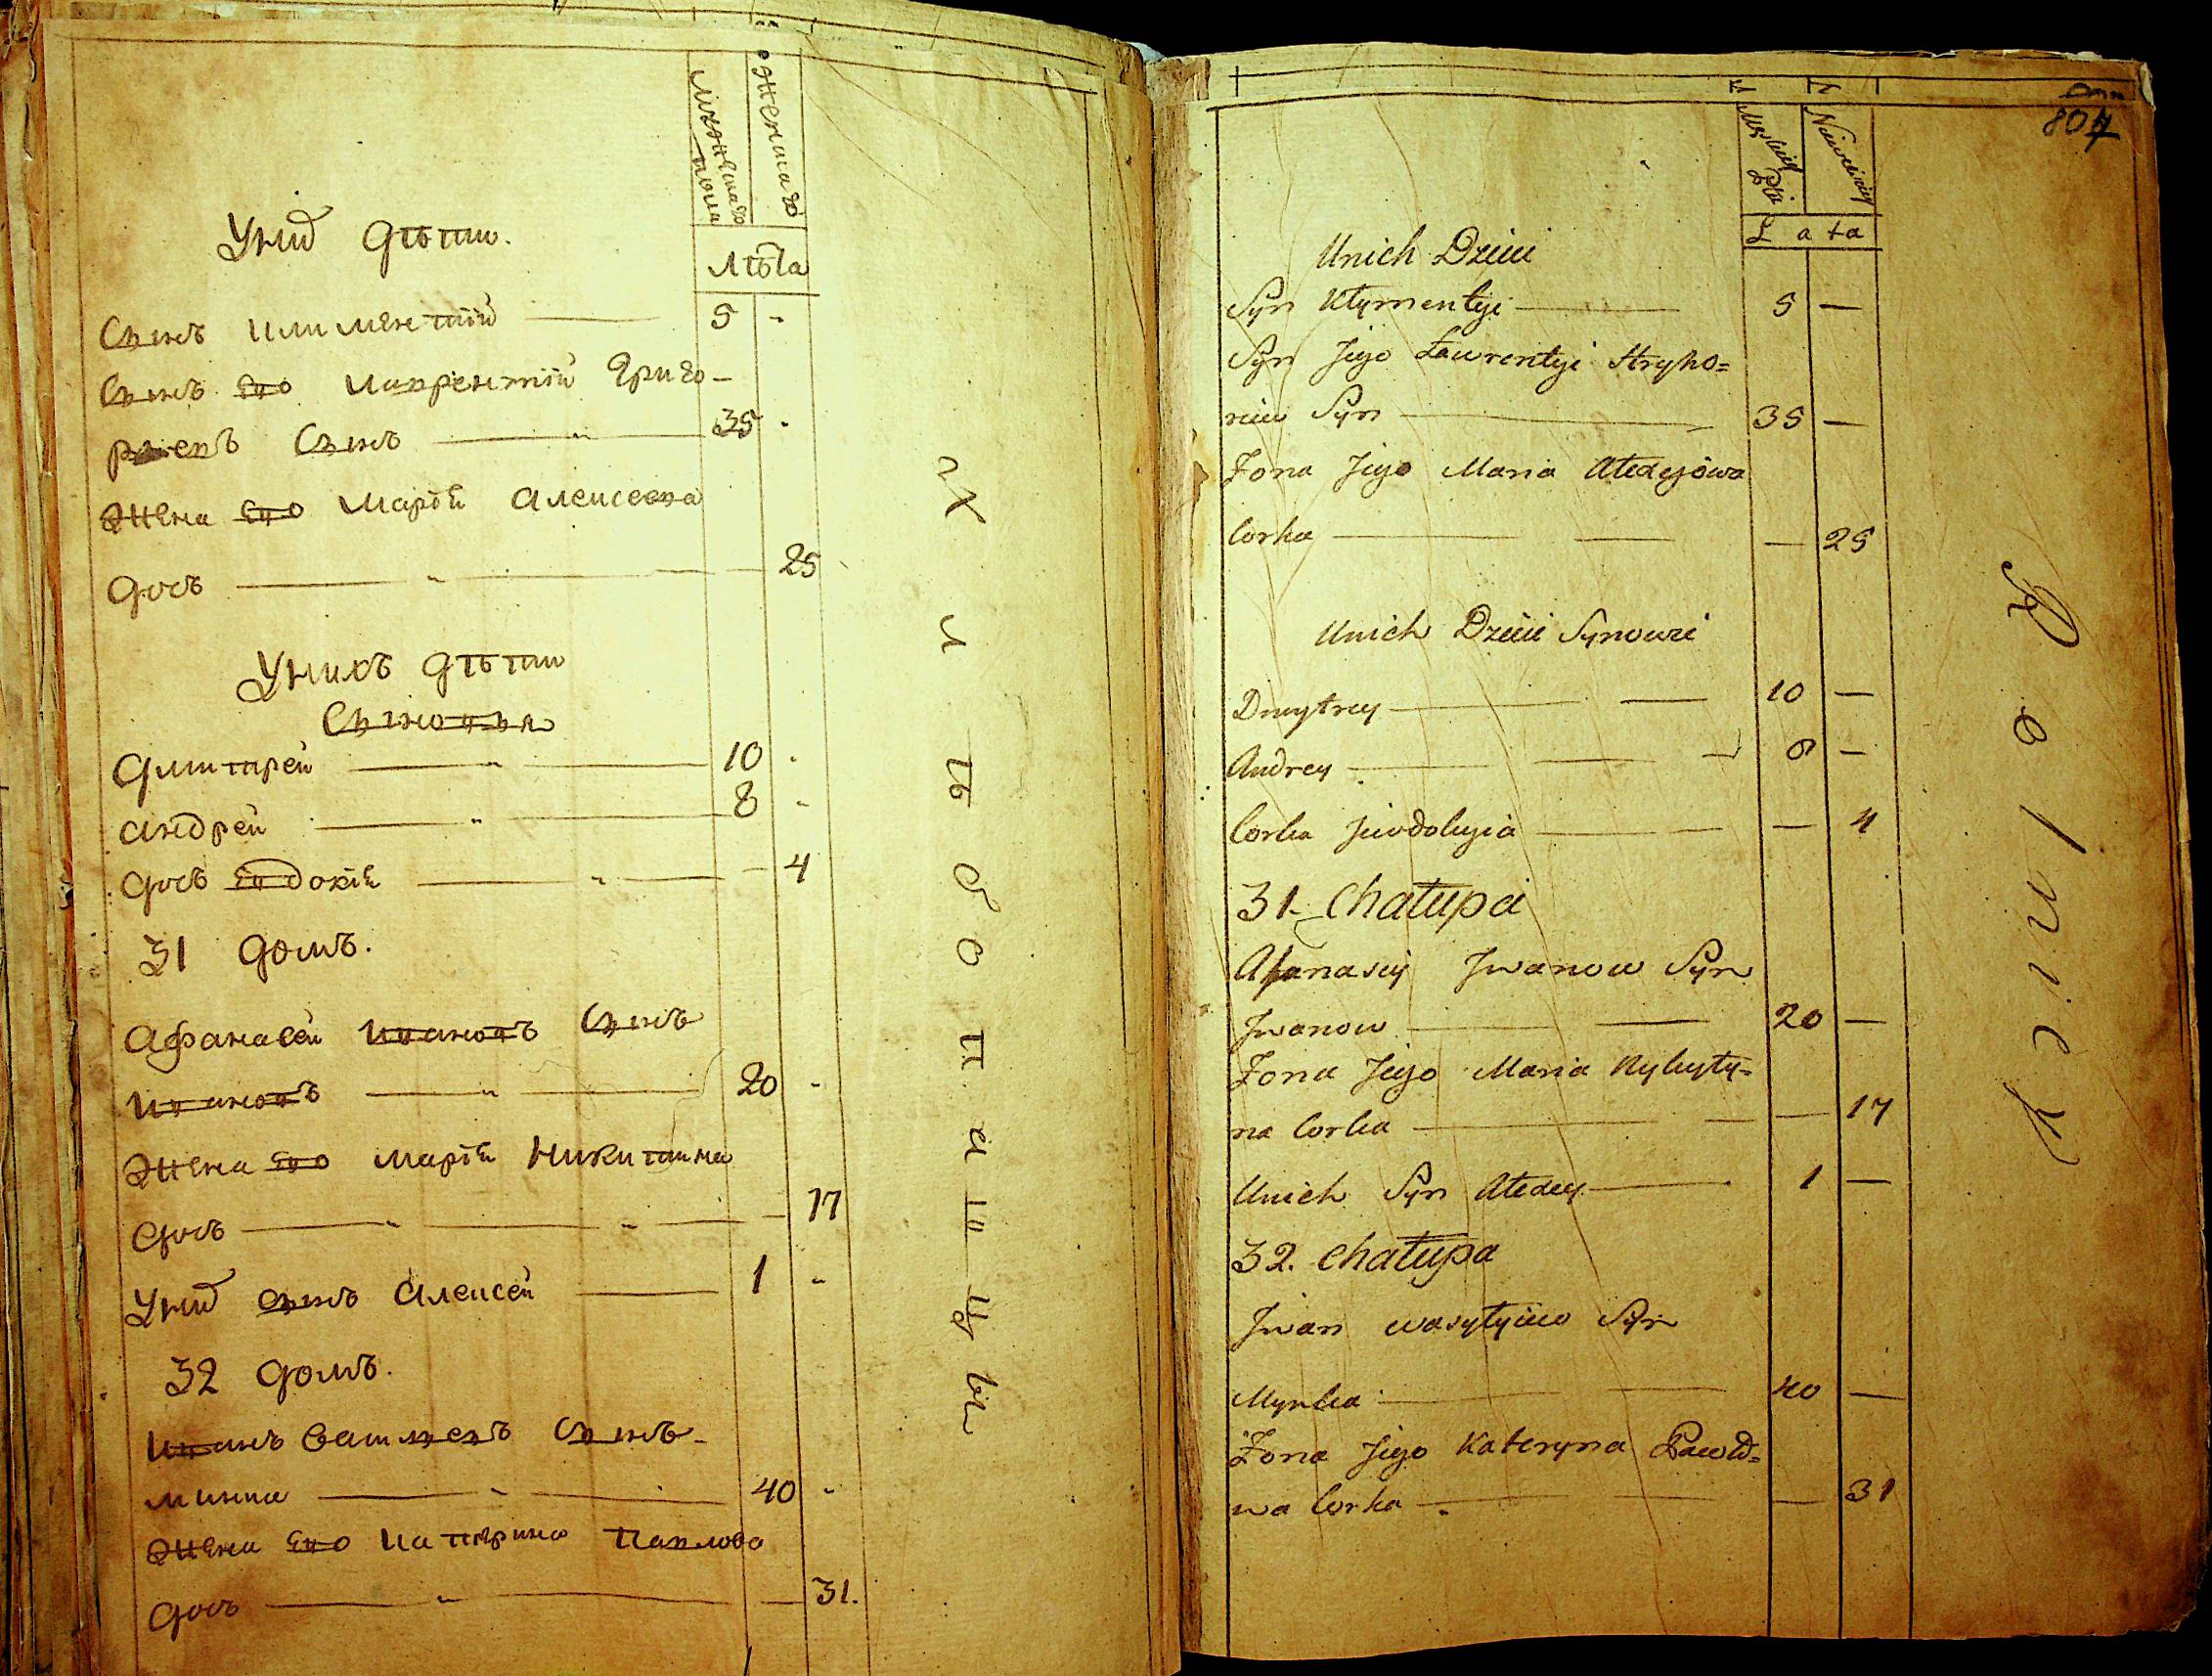 мужеска
пола
женска
лѣта
У нихъ дѣти.
Сынъ Климентій 5 -
Сынъ его Лаврентій Григо-
рьевъ Сынъ 35 -
Жена его Марія Алексеева
дочь 25
У нихъ дѣти
Сыновья
Дмитрей 10 -
Андрей 8 -
дочь Евдокія 4
31 домъ.
Афанасей Ивановъ Сынъ
Ивановъ 20 -
Жена его Марія Никитина
дочь 17
У нихъ сынъ Алексей 1 -
32 домъ.
Иванъ Васильевъ Сынъ
Минка 40 -
Жена его Катерина Павлова
дочь 31.
Хлѣбопашцы
807
Lata
Unich Dzieci
Syn Kłymentyi 5 —
Syn Jego Ławrentyi Hryho=
riew Syn 35 —
Żona Jego Maria Ałexejowa
Corka — 25
Unich Dzieci Synowie
Dmytrey 10 —
Andrey 8 —
Corka Jewdokyia — 4
31. Chałupa
Afanasiy Jwanow Syn
Jwanow 20 —
Żona Jego Maria Nykyty=
na Corka — 17
Unich Syn Ałexey 1 —
32. Chałupa
Jwan Wasylyiew Syn
Mynka 40 —
Żona Jego Kateryna Pawło=
wa Corka — 31
Rolnicy